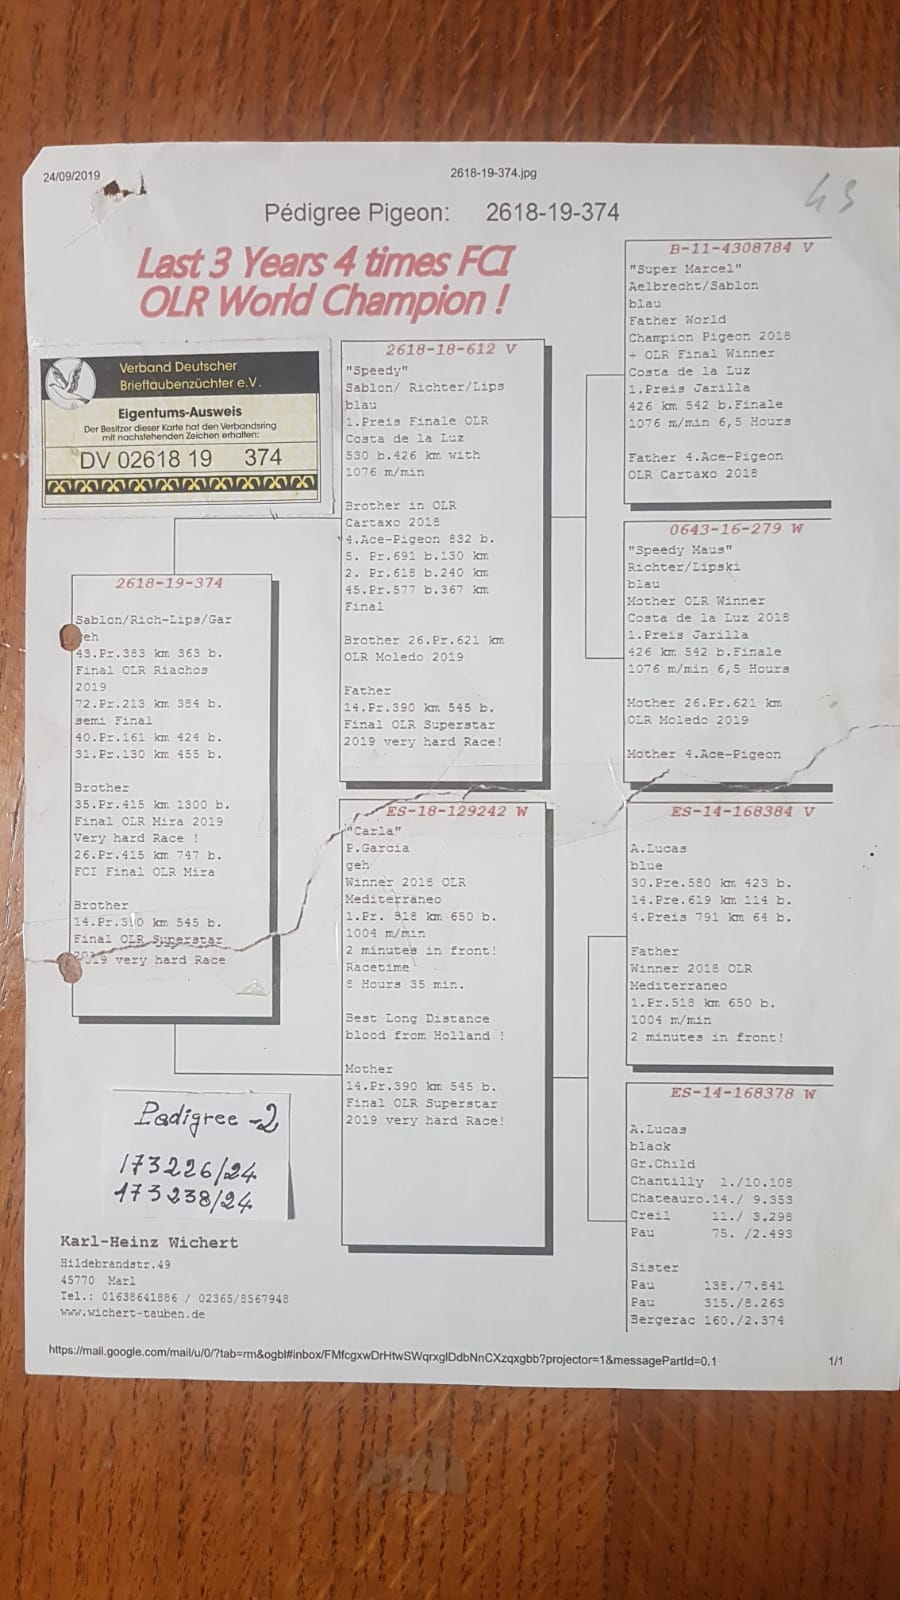 24/09/2019
2618-19-374.jpg
Pédigree Pigeon: 2618-19-374
Last 3 Years 4 times FCI
OLR World Champion !
Verband Deutscher
Brieftaubenzüchter e.V.
Eigentums-Ausweis
Der Besitzer dieser Karte hat den Verbandsring
mit nachstehenden Zeichen erhalten:
DV 02618 19 374
2618-19-374
Sablon/Rich-Lips/Gar
geh
43.Pr.383 km 363 b.
Final OLR Riachos
2019
72.Pr.213 km 384 b.
semi Final
40.Pr.161 km 424 b.
31.Pr.130 km 455 b.
Brother
35.Pr.415 km 1300 b.
Final OLR Mira 2019
Very hard Race !
26.Pr.415 km 747 b.
FCI Final OLR Mira
Brother
14.Pr.390 km 545 b.
Final OLR Superstar
2019 very hard Race
2618-18-612 V
"Speedy"
Sablon/ Richter/Lips
blau
1.Preis Finale OLR
Costa de la Luz
530 b.426 km with
1076 m/min
Brother in OLR
Cartaxo 2018
4.Ace-Pigeon 832 b.
5. Pr.691 b.130 km
2. Pr.618 b.240 km
45.Pr.577 b.367 km
Final
Brother 26.Pr.621 km
OLR Moledo 2019
Father
14.Pr.390 km 545 b.
Final OLR Superstar
2019 very hard Race!
ES-18-129242 W
"Carla"
P.Garcia
geh
Winner 2018 OLR
Mediterraneo
1.Pr. 518 km 650 b.
1004 m/min
2 minutes in front!
Racetime
8 Hours 35 min.
Best Long Distance
blood from Holland !
Mother
14.Pr.390 km 545 b.
Final OLR Superstar
2019 very hard Race!
B-11-4308784 V
"Super Marcel"
Aelbrecht/Sablon
blau
Father World
Champion Pigeon 2018
+ OLR Final Winner
Costa de la Luz
1.Preis Jarilla
426 km 542 b.Finale
1076 m/min 6,5 Hours
Father 4.Ace-Pigeon
OLR Cartaxo 2018
0643-16-279 W
"Speedy Maus"
Richter/Lipski
blau
Mother OLR Winner
Costa de la Luz 2018
1.Preis Jarilla
426 km 542 b.Finale
1076 m/min 6,5 Hours
Mother 26.Pr.621 km
OLR Moledo 2019
Mother 4.Ace-Pigeon
ES-14-168384 V
A.Lucas
blue
30.Pre.580 km 423 b.
14.Pre.619 km 114 b.
4.Preis 791 km 64 b.
Father
Winner 2018 OLR
Mediterraneo
1.Pr.518 km 650 b.
1004 m/min
2 minutes in front!
ES-14-168378 W
A.Lucas
black
Gr.Child
Chantilly 1./10.108
Chateauro.14./ 9.353
Creil 11./ 3,298
Pau 75. /2.493
Sister
Pau 138./7.841
Pau 315./8.263
Bergerac 160./2.374
Pedigree -2
173226/24
173238/24
Karl-Heinz Wichert
Hildebrandstr.49
45770 Marl
Tel.: 01638641886 / 02365/8567948
www.wichert-tauben.de
https://mail.google.com/mail/u/0/?tab=rm&ogbl#inbox/FMfcgxwDrHtwSWqrxglDdbNnCXzqxgbb?projector=1&messagePartId=0.1
1/1